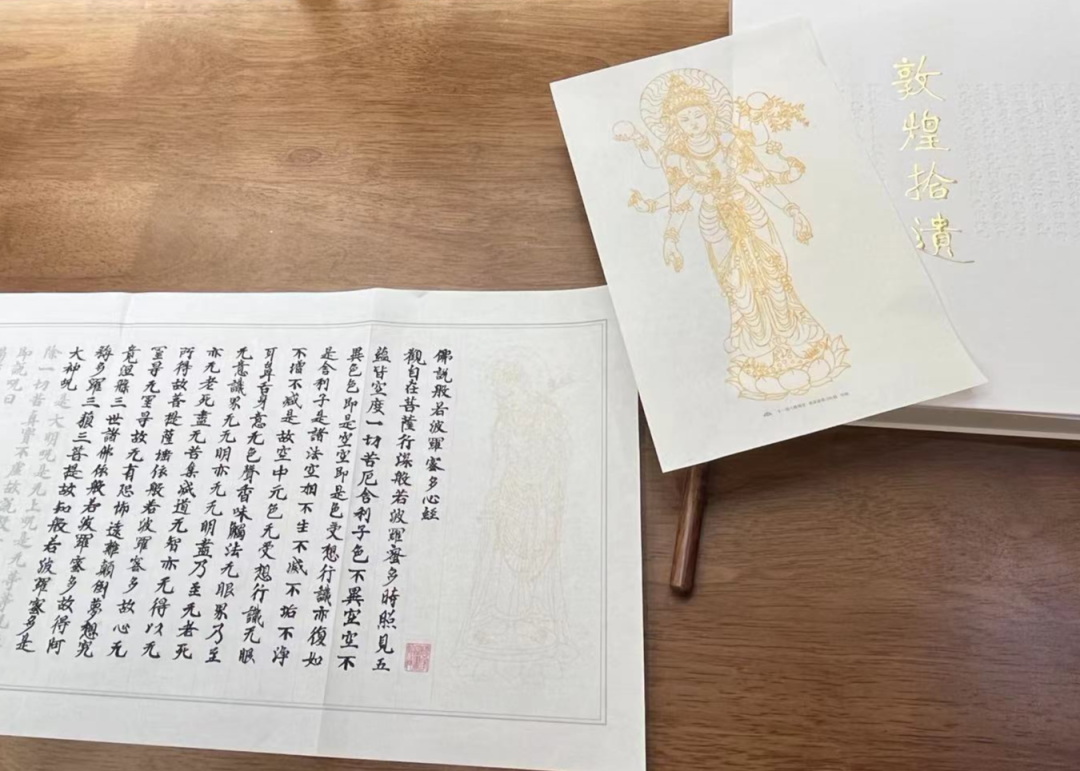 敦煌拾遺
佛說般若波羅蜜多心経
觀自在菩薩行深般若波羅蜜多時照見五
蘊皆空度一切苦厄舍利子色不異空空不
異色色即是空空即是色受想行識亦復如
是舍利子是諸法空相不生不滅不垢不淨
不增不減是故空中无色无受想行識无眼
耳鼻舌身意无色聲香味觸法无眼界乃至
无意識界无无明亦无无明盡乃至无老死
亦无老死盡无苦集滅道无智亦无得以无
所得故菩提薩埵依般若波羅蜜多故心无
罣㝵无罣㝵故无有恐怖遠離顛倒夢想究
竟涅槃三世諸佛依般若波羅蜜多故得阿
耨多羅三藐三菩提故知般若波羅蜜多是
大神咒是大明咒是无上咒是无等等咒
除一切苦真實不虛故說般
即說咒曰